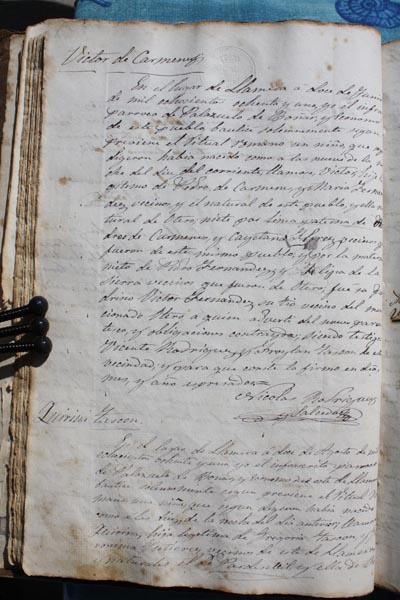 Victor de Carmenes
En el lugar de Llamera á doce de Junio
de mil ochocientos ochenta y uno, yo el infro
parroco de Palazuelo de Boñar, y Economo
de este pueblo bauticé solemnemente segun
previene el Ritual romano un niño, que
digeron habia nacido como a las nueve de la
che del dia del corriente, llamase Victor, hijo
gitimo de Pedro de Carmenes, y Maria Fernan
dez, vecinos, y el natural de este pueblo, y ella
tural de Otero, nieto por linea paterna de
dres de Carmenes, y Cayetana
fueron de este mismo pueblo, y por la mater
nieto de Pedro Fernandez, y Felipa de la
Sierra vecinos que fueron de Otero, fue su
drino Victor Fernandez, su tio vecino del
cionado Otero á quien adverti del nuevo paren
tesco, y obligaciones contraidas, siendo testigos
Vicente Rodriguez, y Froylan Tascon de
vecindad, y para que conste lo firmo en dia
mes, y año expresados=
Nicolas Rodriguez
y Salceda
Quirina Tascon
En el lugar de Llamera á doce de Agosto de mil
ochocientos ochenta y uno yo el infraescrito parroco
de Palazuelo de Boñar, y Economo del este de Llamera
bautice solemnemente segun previene el Ritual
mano una niña, que segun digeron habia nacido
como a las diez de la noche del dia anterior, llamase
Quirina, hija legitima de Gregorio Tascon, y
Gutierrez, vecinos de este de Llamera
y naturales el de y ella de